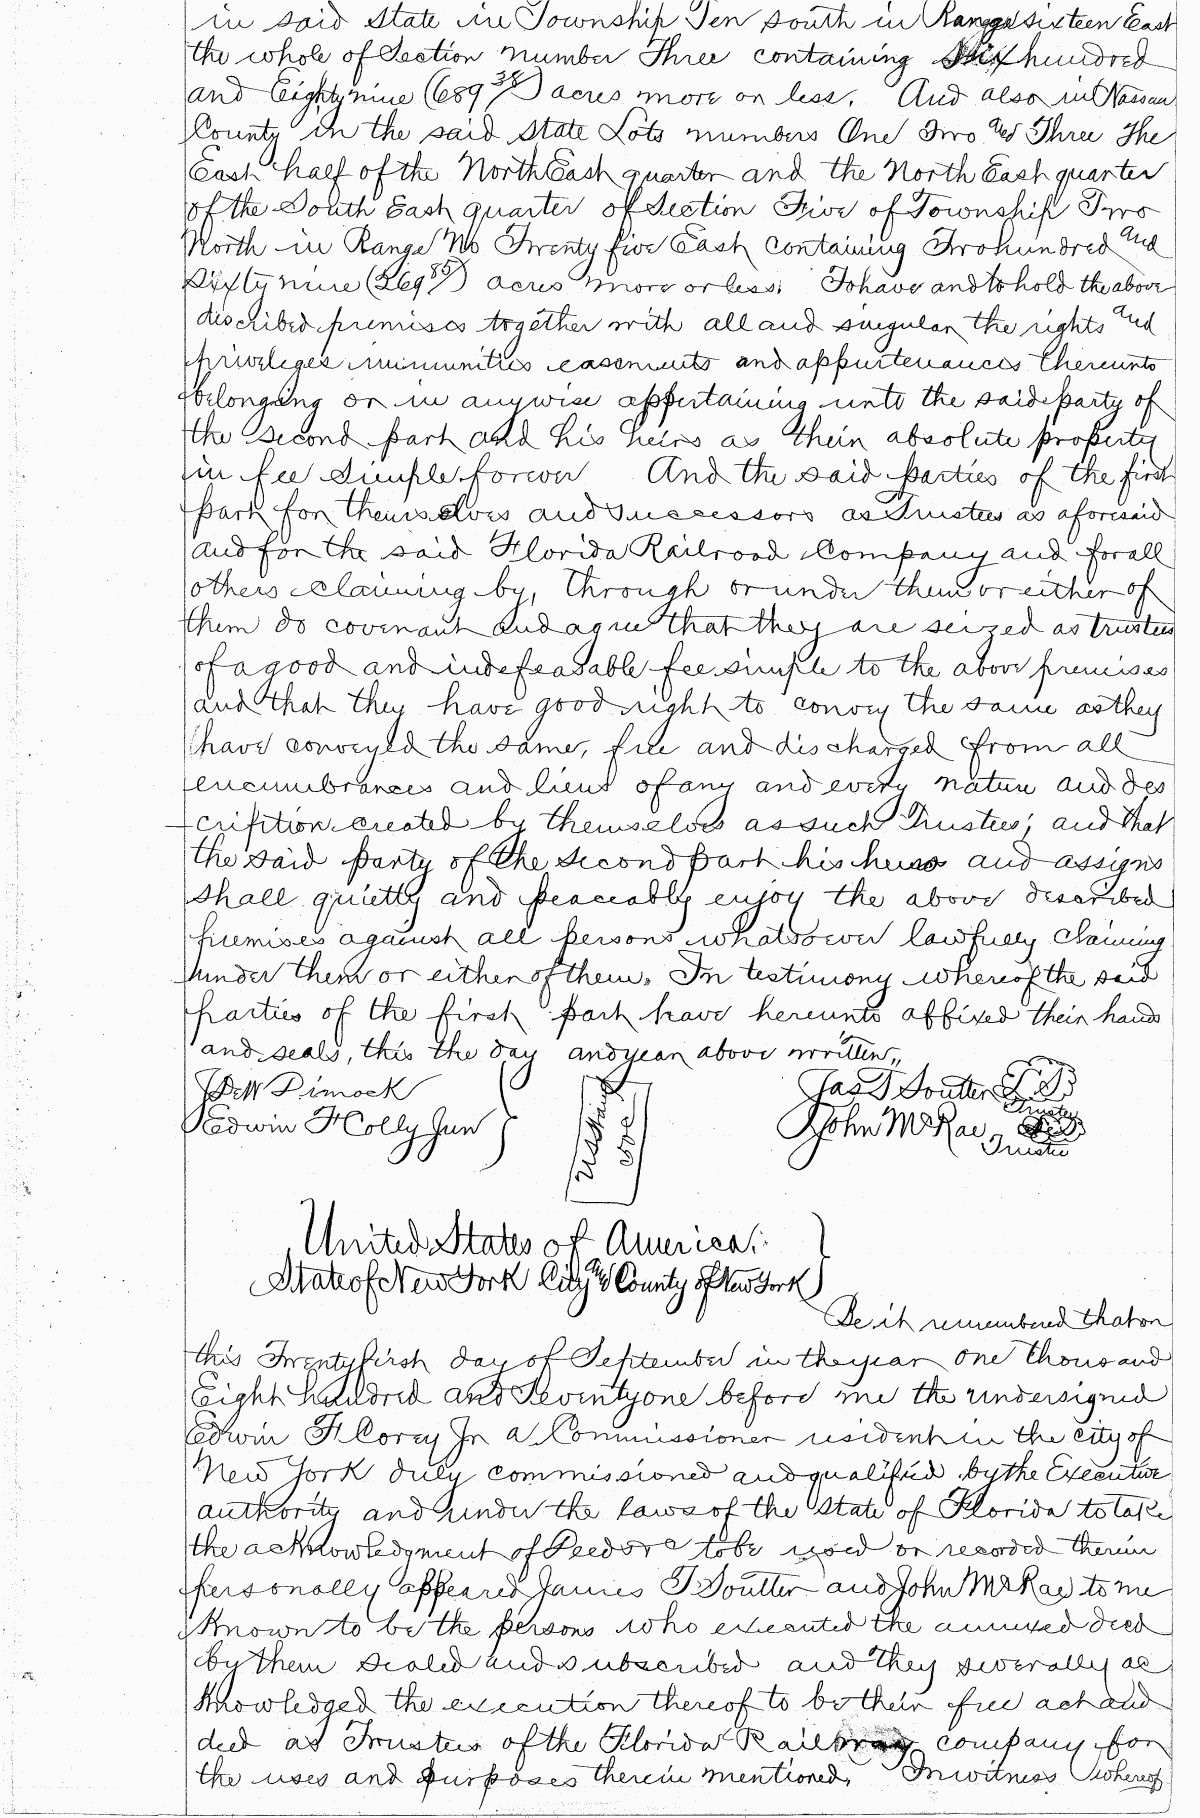 in said State in Township Ten South in Range sixteen East
the whole of Section number Three containing Six hundred
and Eighty nine (689 38/) acres more or less. And also in Nassau
County in the said State Lots numbers One Two and Three The
East half of the North East quarter and the North East quarter
of the South East quarter of Section Five of Township Two
North in Range No Twenty five East containing Two hundred and
Sixty nine (269 85/) acres more or less. To have and to hold the above
discribed premises together with all and singular the rights and
privileges immunities easements and appurtenances thereunto
belonging or in anywise appertaining unto the said party of
the second part and his heirs as their absolute property
in fee simple forever And the said parties of the first
part for themselves and successors as Trustees as aforesaid
and for the said Florida Railroad Company and for all
others claiming by, through or under them or either of
them do covenant and agree that they are seized as trustees
of a good and indefeasable fee simple to the above premises
and that they have good right to convey the same as they
have conveyed the same, free and discharged from all
encumbrances and liens of any and every nature and des
cription created by themselves as such Trustees; and that
the said party of the second part his heirs and assigns
shall quietly and peaceably enjoy the above described
premises against all persons whatsoever lawfully claiming
under them or either of them. In testimony whereof the said
parties of the first part have hereunto affixed their hands
and seals, this the day and year above written,,
Dimock Jas T Soutter L.S
Trustee
Edwin F Colly Jun John McRae
Trustee
United States of America.
State of New York City and County of New York
Be it remembered that on
this Twenty first day of September in the year one thousand
Eight hundred and Seventy one before me the undersigned
Edwin F Corey Jr a Commissioner resident in the city of
New York duly commissioned and qualified by the Executive
authority and under the laws of the State of Florida to take
the acknowledgment of Deeds &c to be used or recorded therein
personally appeared James T Soutter and John McRae to me
known to be the persons who executed the annexed deed
by them sealed and subscribed and they severally ac
knowledged the execution thereof to be their free act and
deed as Trustees of the Florida Railway company for
the uses and purposes therein mentioned. In witness whereof